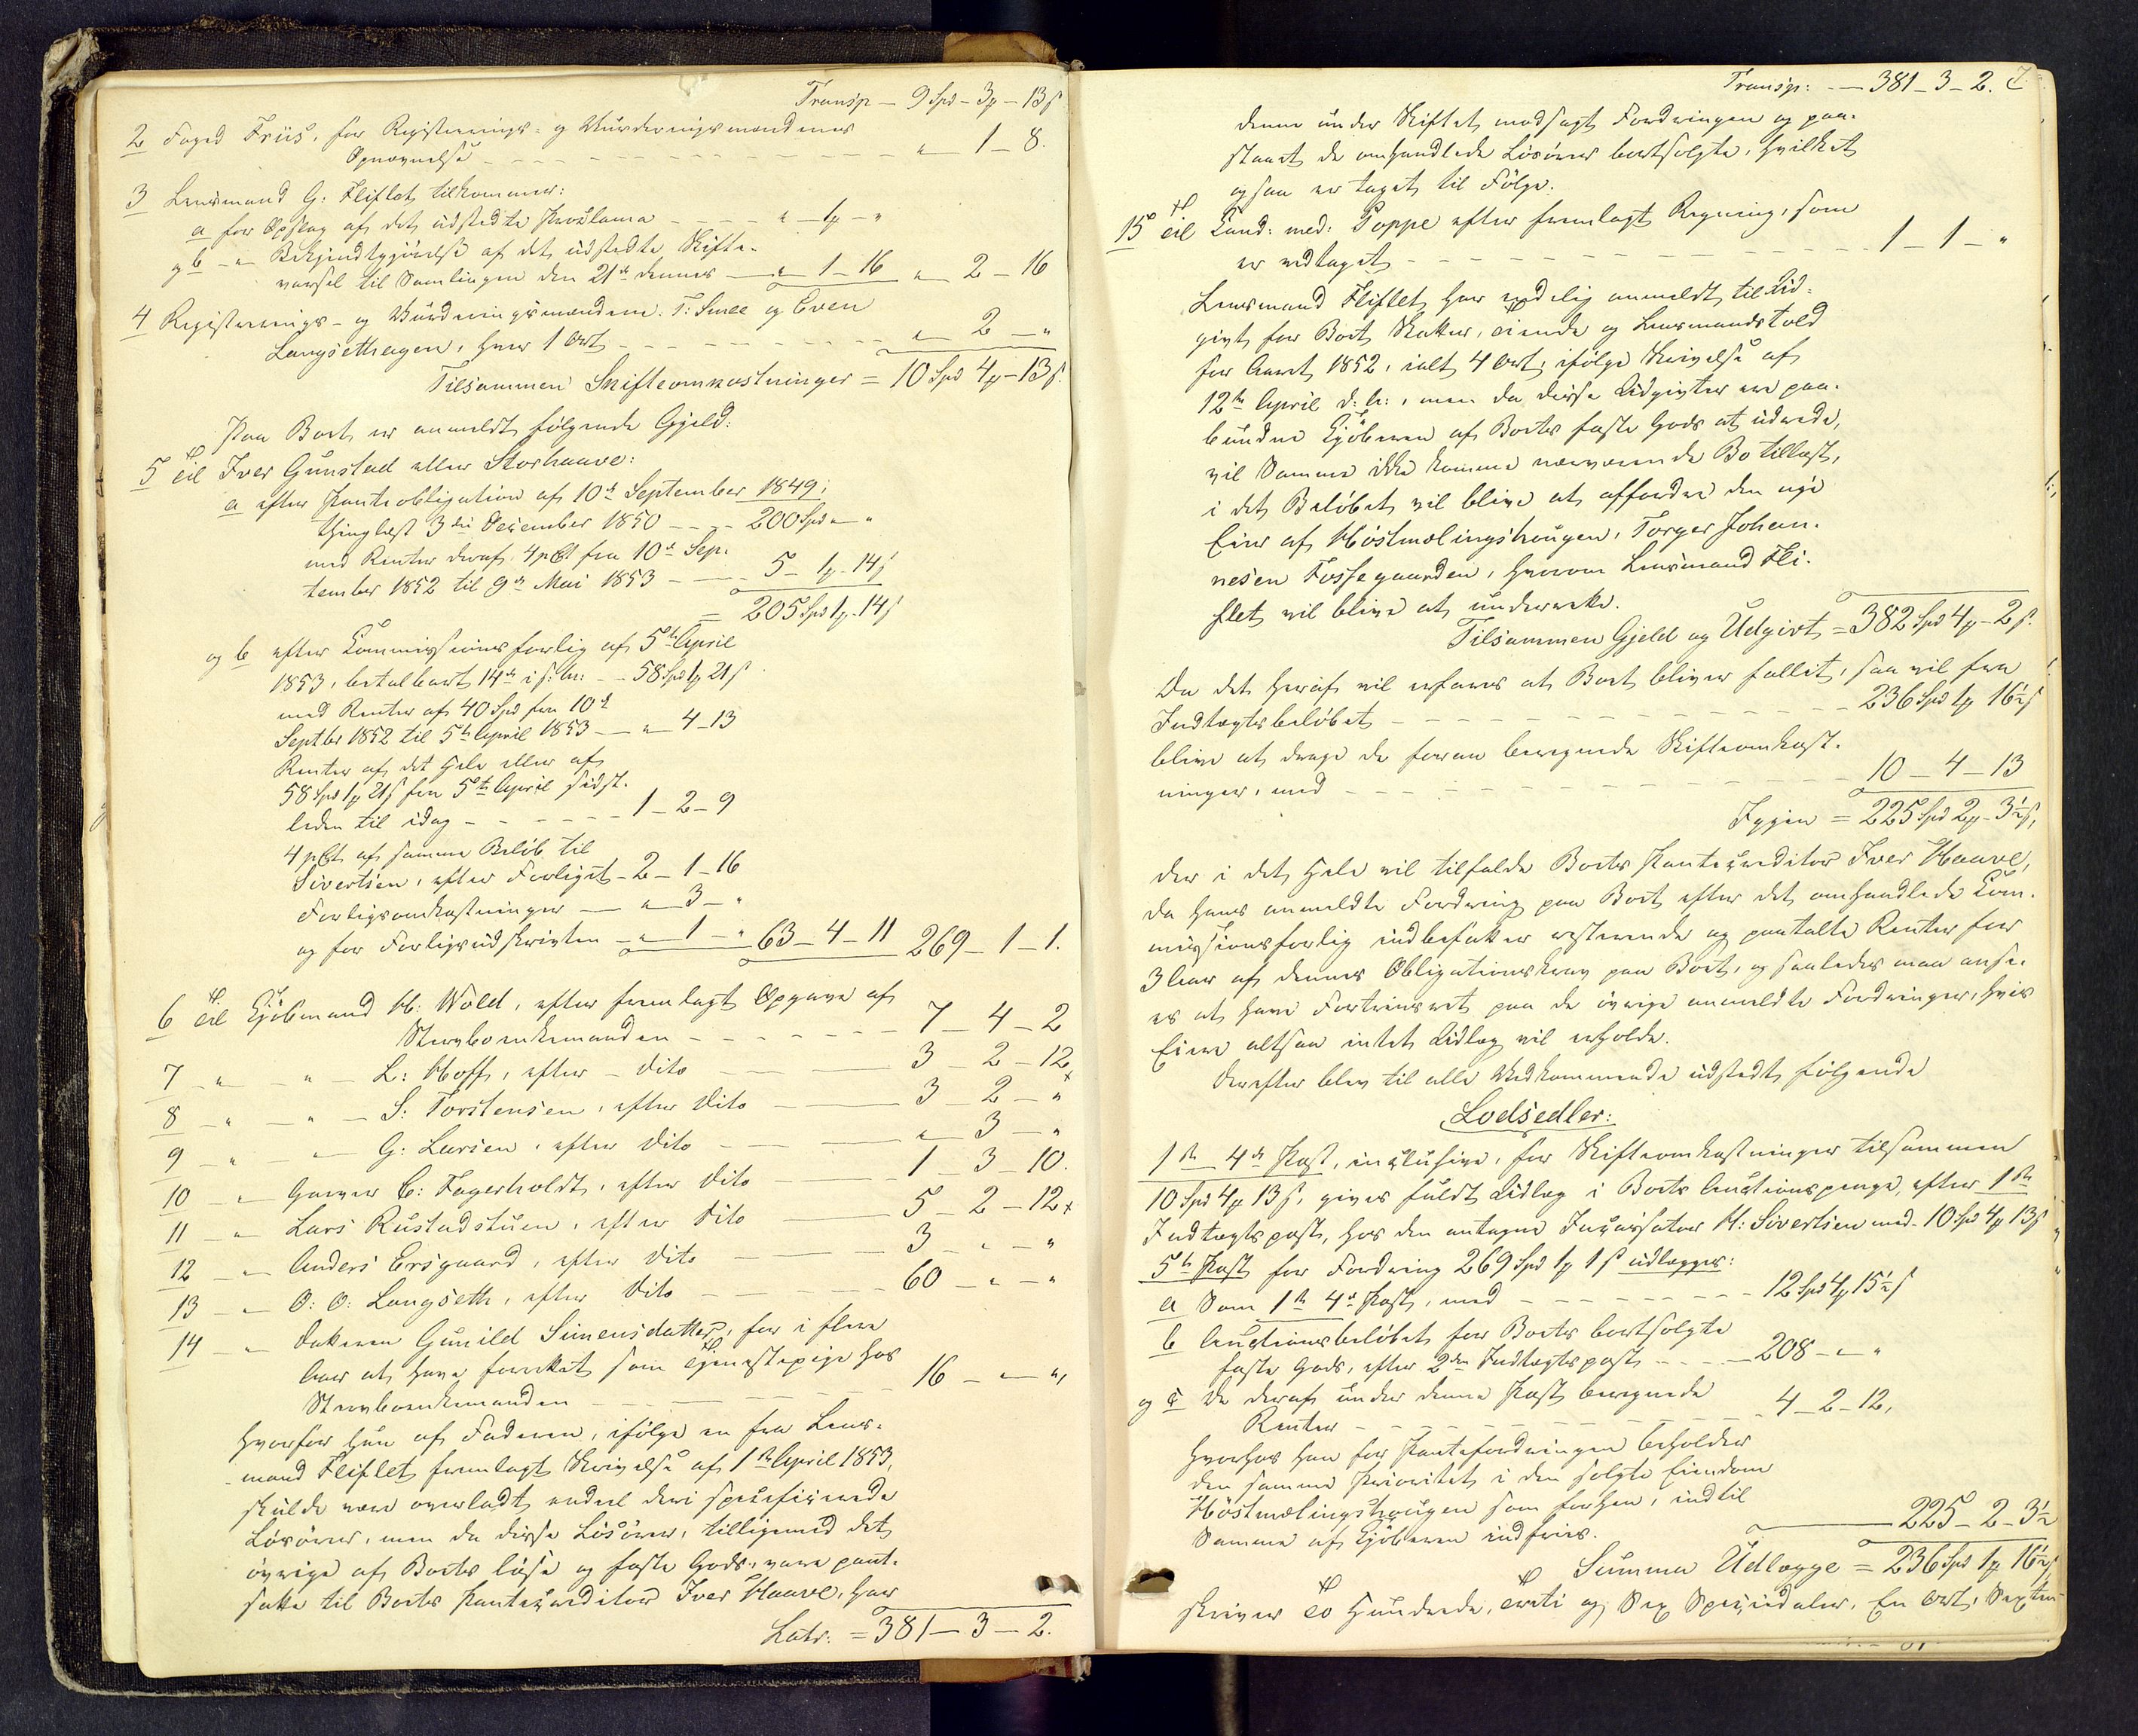 Transp – 9 Spd – 3 – 13 s
2 Foged Friis, for Registrerings- og Vurderingsmændenes
Opnævnelse – – – " 1 – 8.
3 Lensmand G: Fliflet tilkommer:
a for Opslag af det udstedte Proklama – – – " – 1 – "
og b – " – Bekjendtgjørelse af det udstedte Skifte-
varsel til Samlingen den 21de dennes – " 1 – 16 " 2 – 16
4 Registrerings- og Vurderingsmændene T: Smee og Even
Langsethagen, hver 1 Ort – – – " 2 – "
Tilsammen Skifteomkostninger = 10 Spd 4 – 13 s.
Paa Boet er anmeldt følgende Gjeld:
5 Til Iver Gunstad eller Storhaave:
a efter Panteobligation af 10de September 1849,
thinglæst 3die December 1850 – – 200 Spd " – "
med Renter deraf 4 pCt fra 10de Sep-
tember 1852 til 9de Mai 1853 – – 5 – 1 – 14 s
= 205 Spd 1 – 14 s
og b efter Commissionsforlig af 5te April
1853, betalbart 14de i s: M: – – 58 Spd 1 21 s
med Renter af 40 Spd fra 10de
Septbr 1852 til 5te April 1853 – " 4 – 13
Renter af det Hele eller af
58 Spd 1 21 s fra 5te April sidst-
leden til idag – – – 1 – 2 – 9
4 pCt af samme Beløb til
Sivertsen, efter Forliget – 2 – 1 – 16
Forligsomkostninger – " 3 – "
og for Forligsudskriften – " 1 – " 63 – 4 – 11 269 – 1 – 1.
6 Til Kjøbmand M: Wold, efter fremlagt Opgave af
Stervboenkemanden – – – 7 – 4 – 2
7 – " – " – L: Hoff, efter – Dito – – 3 2 – 12
8 – " – " – S: Torstensen, efter Dito – – 3 – 2 – "
9 – " – " – G: Larsen, efter Dito – – " 3 – "
10 – " – Garver C: Fagerholdt, efter Dito – – 1 – 3 – 10.
11 – " – Lars Rustadstuen, efter Dito – – 5 – 2 – 12
12 – " – Anders Ersgaard, efter Dito – – 3 – " – "
13 – " – O: O: Langseth, efter Dito – – 60 – " – "
14 – " – Datteren Gunild Simensdatter, for i flere
Aar at have forrettet som Tjenestepige hos
Stervboenkemanden – – – 16 – " – "
hvorfor hun af Faderen, ifølge en fra Lens-
mand Fliflet fremlagt Skrivelse af 1ste April 1853,
skulde være overladt endeel deri specificerede
Løsøren, men da disse Løsøren, tilligemed det
øvrige af Boets løse og faste Gods, vare pant-
satte til Boets Pantekreditor Iver Haave, har
Latr: = 381 – 3 – 2.
Transp: – – 381 – 3 – 2. 7
denne under Skiftet modsagt Fordringen og paa-
staaet de omhandlede Løsøren bortsolgte, hvilket
ogsaa er taget til Følge.
15 Til Cand: med: Poppe efter fremlagt Regning, som
er vedtaget – – – 1 – 1 – "
Lensmand Fliflet har endelig anmeldt til Ud-
givt for Boet Skatter, Tiende og Lensmandstold
for Aaret 1852, ialt 4 Ort, ifølge Skrivelse af
12te April d: A:, men da disse Udgivter ere paa-
bundne Kjøberen af Boets faste Gods at udrede,
vil Samme ikke komme nærværende Bo tillast,
i det Beløbet vil blive at affordre den nye
Eier af Høstmælingshougen, Torger Johan-
nesen Fossegaarden, hvorom Lensmand Fli-
flet vil blive at underrette.
Tilsammen Gjeld og Udgivt = 382 Spd 4 – 2 s.
Da det heraf vil erfares at Boet bliver fallit, saa vil fra
Indtægtsbeløbet – – – 236 Spd 1 16½ s
blive at drage de foran beregnede Skifteomkost-
ninger, med – – – 10 – 4 – 13
Igjen = 225 Spd 2 – 3½ s,
der i det Hele vil tilfalde Boets Pantekreditor Iver Haave,
da hans anmeldte Fordring paa Boet efter det omhandlede Com-
missionsforlig indbefatter resterende og paatalte Renter for
3 Aar af dennes Obligationskrav paa Boet, og saaledes maa anse-
es at have Fortrinsret paa de øvrige anmeldte Fordringer, hvis
Eiere altsaa intet Udlæg vil erholde.
Derefter blev til alle Vedkommende udstedt følgende
Lodsedler:
1ste – 4de Post, inclusive, for Skifteomkostninger tilsammen
10 Spd 4 13 s, gives fuldt Udlæg i Boets Auctionspenge, efter 1ste
Indtægtspost, hos den antagne Incassator M: Sivertsen med – 10 Spd 4 13 s
5te Post for Fordring 269 Spd 1 1 s udlægges:
a Som 1ste – 4de Post, med – – – 12 Spd 4 15½ s
b Auctionsbeløbet for Boets bortsolgte
faste Gods, efter 2den Indtægtspost – – – 208 – " – "
og c De deraf under denne Post beregnede
Renter – – – 4 – 2 – 12,
hvorhos han for Pantefordringen beholder
den samme Prioritet i den solgte Eiendom
Høstmælingshougen som forhen, indtil
Samme af Kjøberen indfries.
225 – 2 – 3½
Summa Udlægge = 236 Spd 1 16½ s,
skriver To Hundrede, Treti og Sex Speciedaler, En Ort, Sexten